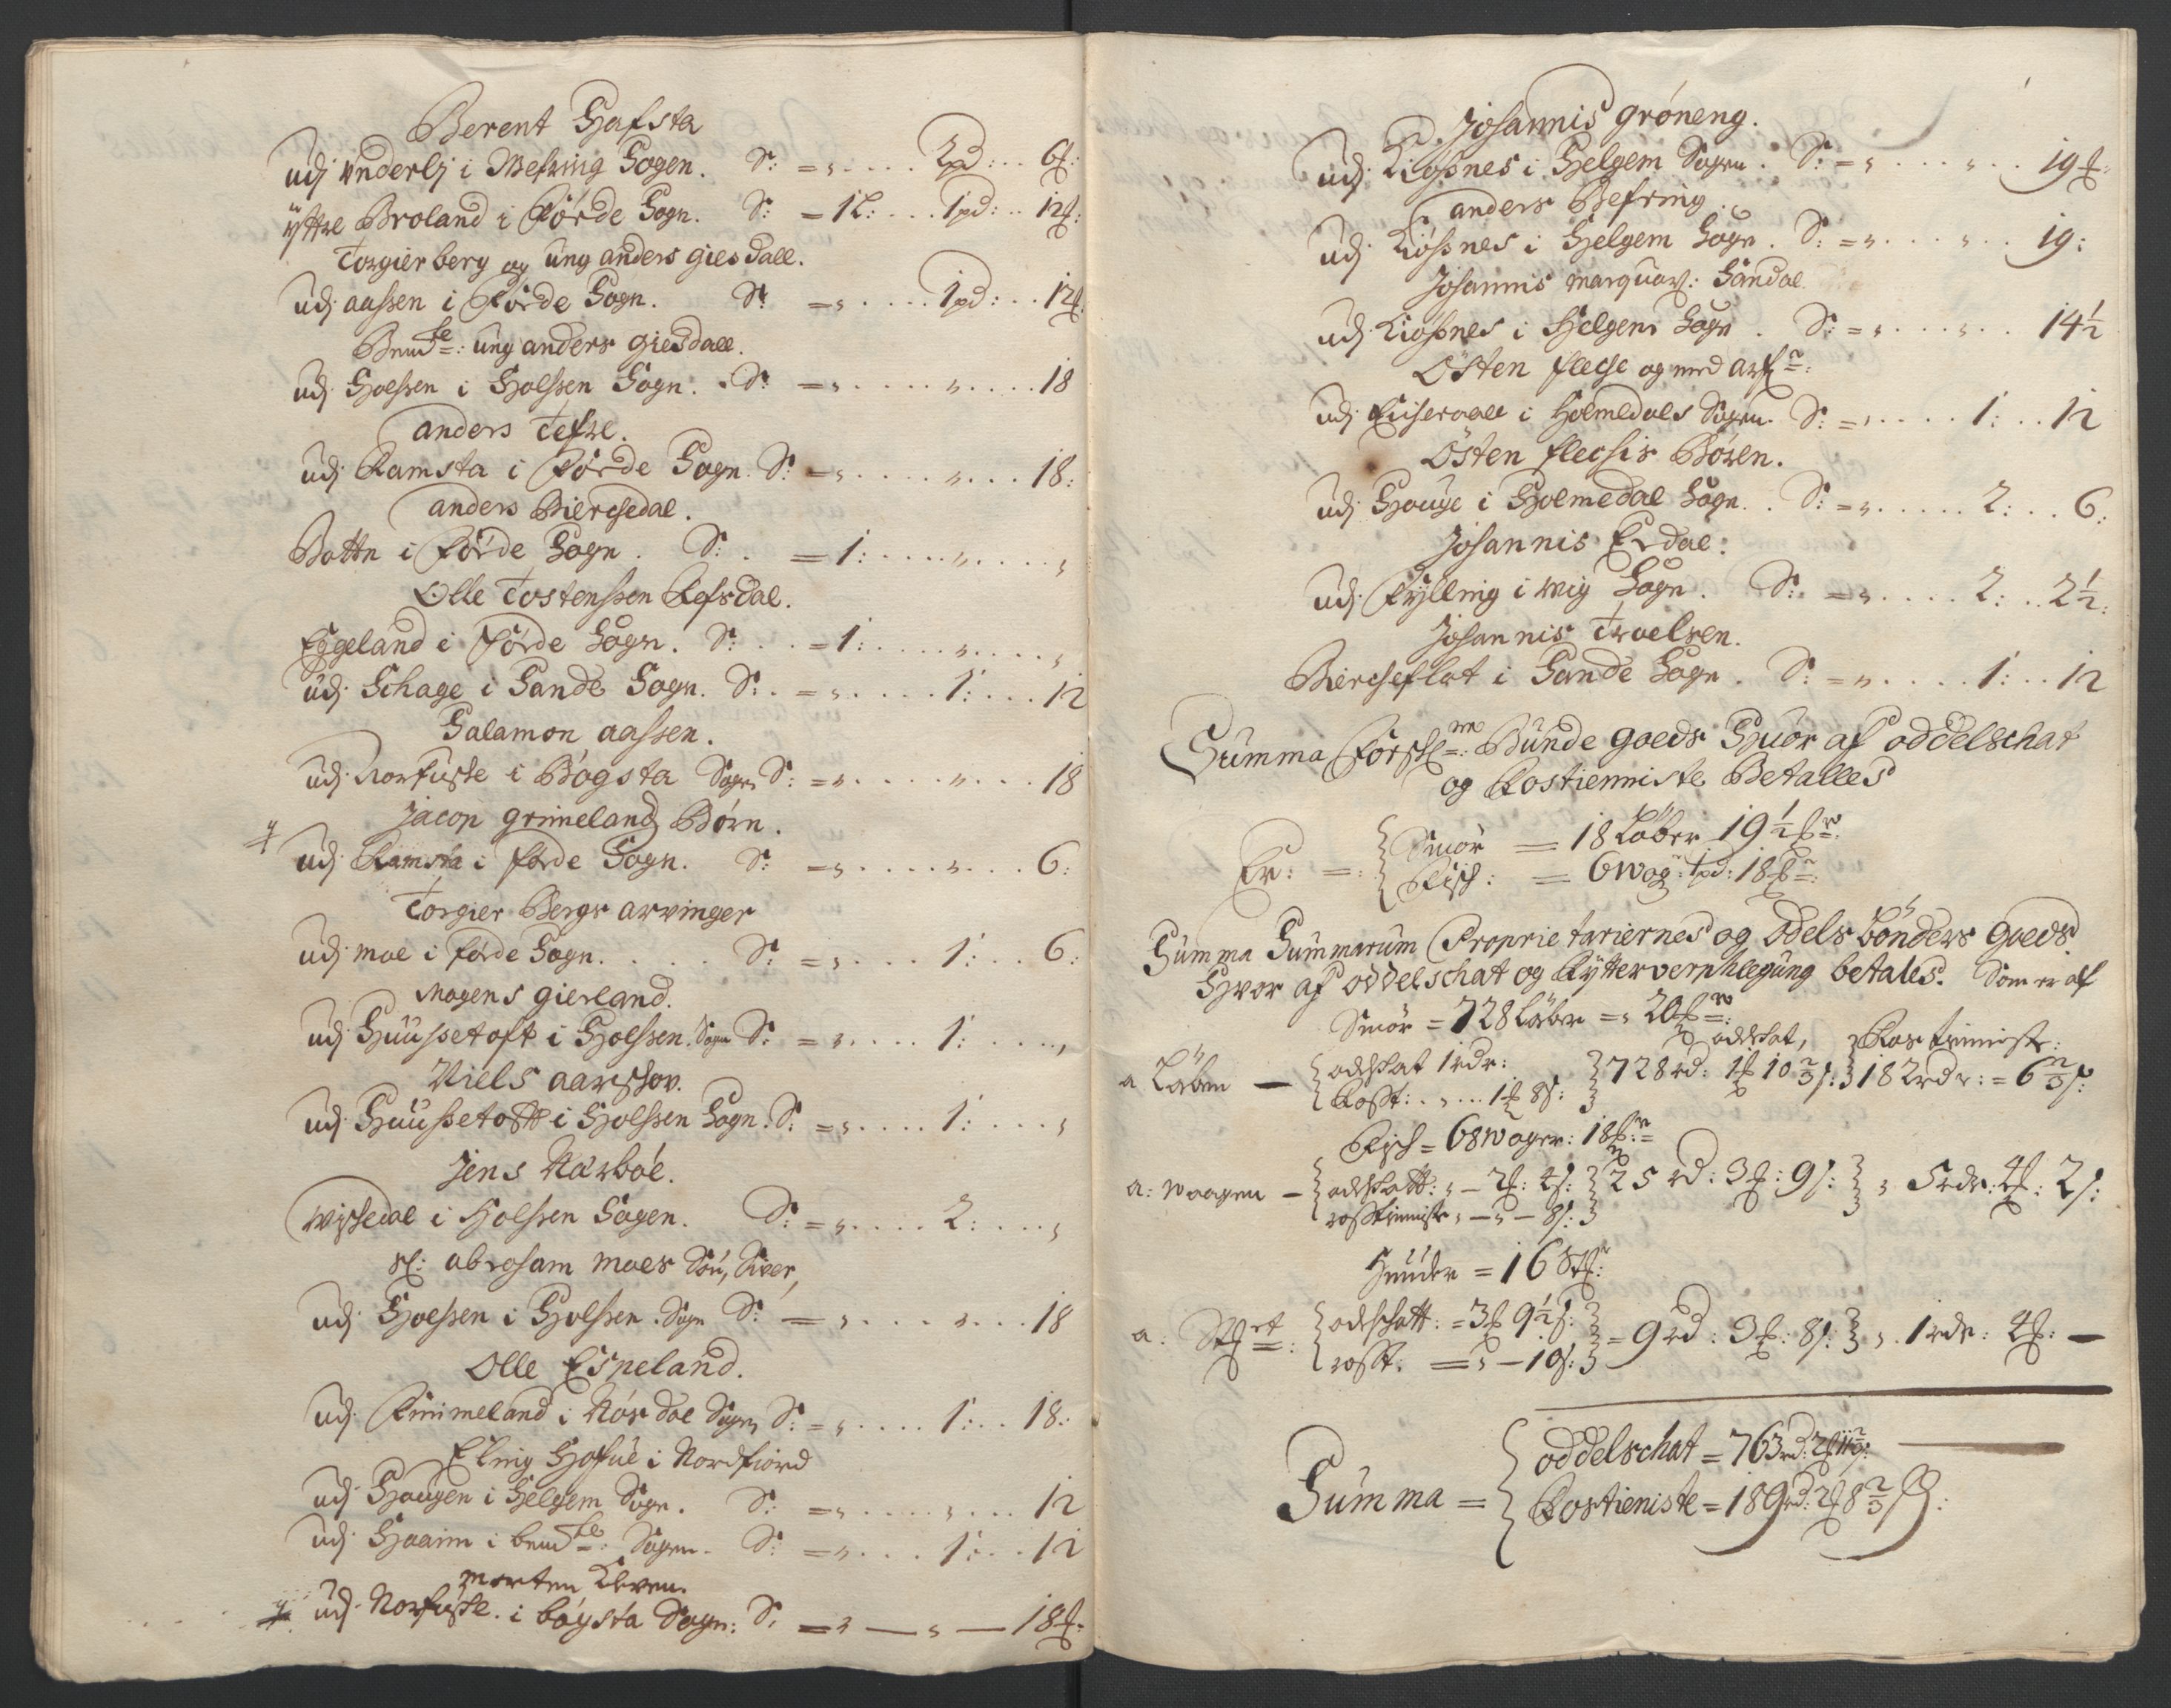 Berent Hafsta
udj Underlj i Wefring Sogen. S: = „ .... 2pd: .. 6f:
ÿttre Broland i Førde Sogn. S: = 1L: ... 1pd: .. 12f:
Torgier berg og ung anders giesdall.
udj aassen i Førde Sogn. S: = „ .... 1pd: .. 12f:
Bemte: ung anders giesdall.
udj Holssen i Holssen Sogn. S: = „ .... „ .... 18
anders Tefre.
udj Ramsta i Førde Sogn. S: = „ .... „ ... 18:
anders Bierchedal.
Bottn i Førde Sogn. S: . = 1: .... „ .... „
Olle Tostenssen Refsdal.
Eggeland i Førde Sogn. S: . . = 1: .... „ .... „
udj Schage i Sande Sogn. S: . = „ .... 1: ... 12
Salamon aassen.
udj Norfusse i Bogsta Sogn S: = „ .... „ ... 18
Jacop grimeland Børn.
udj Ramsta i førde Sogn. S: = „ .... „ ... 6:
Torgier Bergs arvinger
udj moe i førde Sogn. . . . S: = „ ... 1: .. 6:
Mogens gierland.
udj Huussetoft i Holssen. Sogn S: = „ .... 1: .... „
Niels aarschov.
udj Huussetoft i Holssen Sogn. S: = „ .... 1: ... „
Jens Narbøe.
Wissedal i Holssen Sogen. S: = „ .... 2: ... „
Sl: abraham moes Søn, Siver,
udj Holssen i Holssen. Sogn S: = „ .... „ ... 18
Olle Espeland.
udj Rimmeland i Nørdal Sogn S: = „ .... 1: .. 18:
Elling Hofue i Nordfiord
udj Haugen i Helgem Sogn. S: = „ .... „ ... 12
udj Haaim i bemte: Sogen. S: = „ ... 1: .. 12
morten Kleven.
udj Norfusse. i bogsta Sogn: S, = „ — „ — 18f.
Johannis grøneng.
udj Kiossnes i Helgem Sogen. S: = „ .... „ .. 19f:
anders Befring.
udj Kiossnes i Helgem Sogn. S: = „ .... „ .. 19:
Johannis marquar: Sandal
udj Kiossnes i Helgem Sogn. S: = „ .... „ .. 14½
Østen flechse og med arfn:
udj i Holmedals Sogen. S: = „ .... 1: .. 12
Østen flechis Børen.
udj Houge i Holmedal Sogn. . S: = „ ..... 2: .. 6:
Johannis Erdal:
udj Fylling i wig Sogn. S: = „ .... 2: .. 2½:
Johannis Troelsen.
Biercheflat i Sande Sogn. S: = „ .... 1: .. 12
Summa Forschne: Bunde goeds Huor af oddelschat
og Rostienniste Betalles
Er: = { Smør = 18 Løber 19½ f
Fisch: = 6 wog: 1pd: 18 f
Summa Summarum Proprietariernes og Odels bønders Goeds
Hvor af oddelschat og Rytterverphlegung betales. Som er af
Smør = 728 Løber = „ 20 f
odlskat, Rostienniste:
a Løben — { odlskat 1 rdr: } 728 rd: 1f 10⅔ s: } 182 rdr: = 6⅔ s:
Rosst: . „ ... 1f 8s:
Fisch = 68 Woger: 18 f
a: waagen — { odlskatt: „ — 2f: 4s: } 25 rd: 3f: 9s: } „ 5 rdr: 4f: 2s:
rosstienniste „ — „ — 8s:
Huuder = 16 Stk:
a: Stket: { odlschatt: = 3f 9½ s: } = 9 rd: 3f: 8s: } „ . 1 rdr: 4f: —
rosst. = „ — 10s:
Summa = { oddelschat = 763 rd: 2f 11 s:
Rostieniste = 189 rd: 2f 8⅔ s: